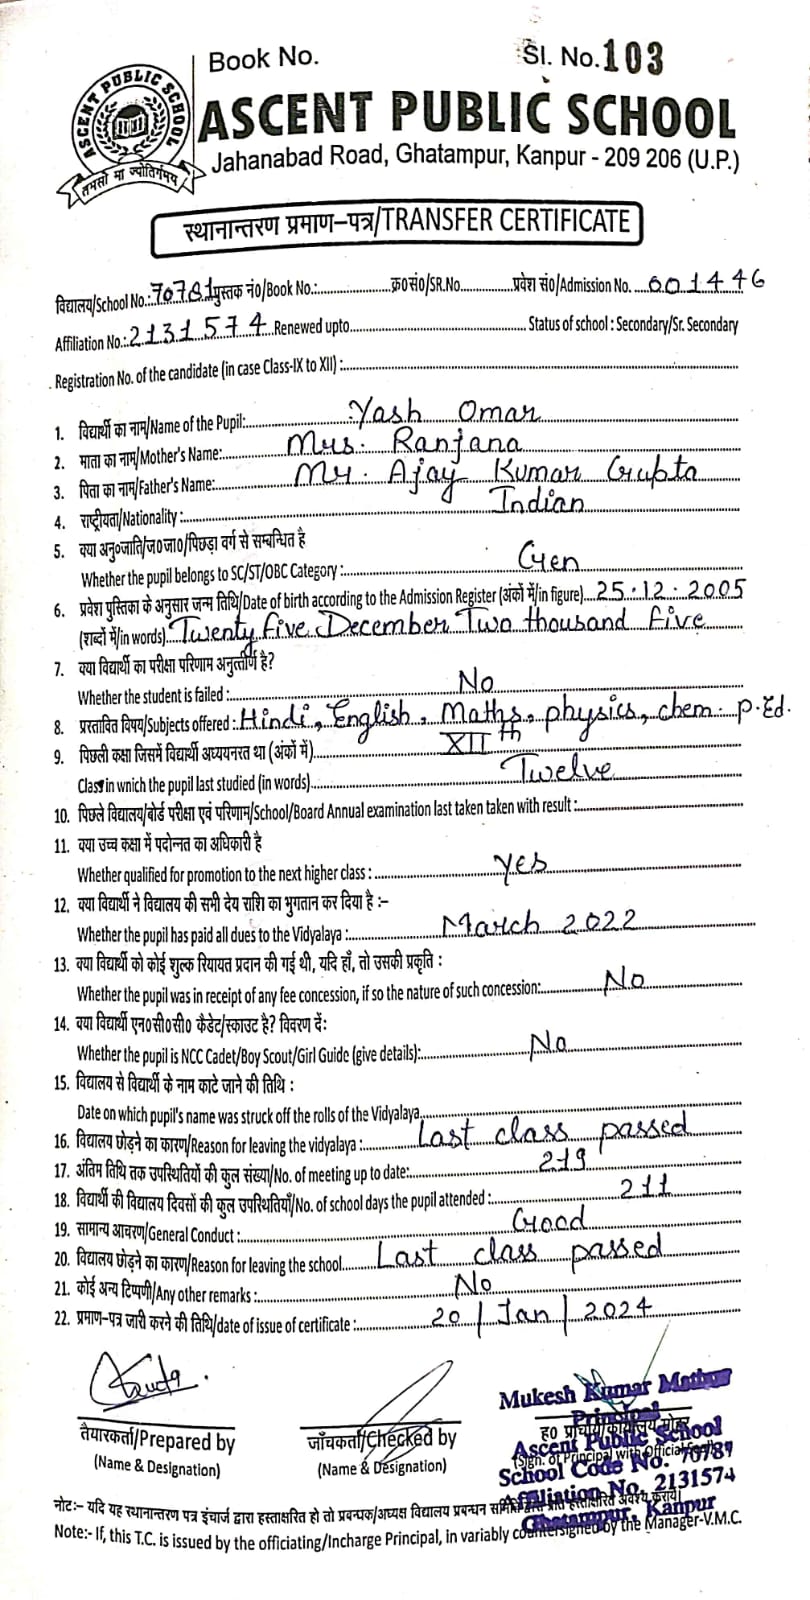 Book No.
Sl. No. 103
ASCENT PUBLIC SCHOOL
तमसो मा ज्योतिर्गमय
ASCENT PUBLIC SCHOOL
Jahanabad Road, Ghatampur, Kanpur - 209 206 (U.P.)
स्थानान्तरण प्रमाण-पत्र/TRANSFER CERTIFICATE
विद्यालय/School No.: 70781 पुस्तक नं०/Book No.: क्र०सं०/SR.No. प्रवेश सं०/Admission No. 001446
Affiliation No.: 2131574 Renewed upto Status of school : Secondary/Sr. Secondary
Registration No. of the candidate (in case Class-IX to XII) :
1. विद्यार्थी का नाम/Name of the Pupil: Yash Omar
2. माता का नाम/Mother's Name: Mrs. Ranjana
3. पिता का नाम/Father's Name: Mr. Ajay Kumar Gupta
4. राष्ट्रीयता/Nationality : Indian
5. क्या अनु०जाति/ज०जा०/पिछड़ा वर्ग से सम्बन्धित है
Whether the pupil belongs to SC/ST/OBC Category : Gen
6. प्रवेश पुस्तिका के अनुसार जन्म तिथि/Date of birth according to the Admission Register (अंकों में/in figure) 25.12.2005
(शब्दों में/in words) Twenty five December Two thousand five
7. क्या विद्यार्थी का परीक्षा परिणाम अनुत्तीर्ण है?
Whether the student is failed : No
8. प्रस्तावित विषय/Subjects offered : Hindi, English, Maths, physics, chem. p.Ed.
9. पिछली कक्षा जिसमें विद्यार्थी अध्ययनरत था (अंकों में) XIIth
Class in wnich the pupil last studied (in words) Twelve
10. पिछले विद्यालय/बोर्ड परीक्षा एवं परिणाम/School/Board Annual examination last taken taken with result :
11. क्या उच्च कक्षा में पदोन्नत का अधिकारी है
Whether qualified for promotion to the next higher class : yes
12. क्या विद्यार्थी ने विद्यालय की सभी देय राशि का भुगतान कर दिया है :-
Whether the pupil has paid all dues to the Vidyalaya : March 2022
13. क्या विद्यार्थी को कोई शुल्क रियायत प्रदान की गई थी, यदि हाँ, तो उसकी प्रकृति :
Whether the pupil was in receipt of any fee concession, if so the nature of such concession: No
14. क्या विद्यार्थी एन०सी०सी० कैडेट/स्काउट है? विवरण दें:
Whether the pupil is NCC Cadet/Boy Scout/Girl Guide (give details): No
15. विद्यालय से विद्यार्थी के नाम काटे जाने की तिथि :
Date on which pupil's name was struck off the rolls of the Vidyalaya
16. विद्यालय छोड़ने का कारण/Reason for leaving the vidyalaya : Last class passed
17. अंतिम तिथि तक उपस्थितियों की कुल संख्या/No. of meeting up to date: 219
18. विद्यार्थी की विद्यालय दिवसों की कुल उपस्थितियाँ/No. of school days the pupil attended : 211
19. सामान्य आचरण/General Conduct : Good
20. विद्यालय छोड़ने का कारण/Reason for leaving the school Last class passed
21. कोई अन्य टिप्पणी/Any other remarks : No
22. प्रमाण-पत्र जारी करने की तिथि/date of issue of certificate : 20/Jan/2024
तैयारकर्ता/Prepared by
(Name & Designation)
जाँचकर्ता/Checked by
(Name & Designation)
Mukesh Kumar Mathur
Principal
ह० प्राचार्य/कार्यालय मोहर
Ascent Public School
(Sign. of Principal with Official Seal)
School Code No. 70781
Affiliation No. 2131574
Ghatampur, Kanpur
नोट:- यदि यह स्थानान्तरण पत्र इंचार्ज द्वारा हस्ताक्षरित हो तो प्रबन्धक/अध्यक्ष विद्यालय प्रबन्धन समिति द्वारा प्रति हस्ताक्षरित अवश्य करायें।
Note:- If, this T.C. is issued by the officiating/Incharge Principal, in variably countersigned by the Manager-V.M.C.